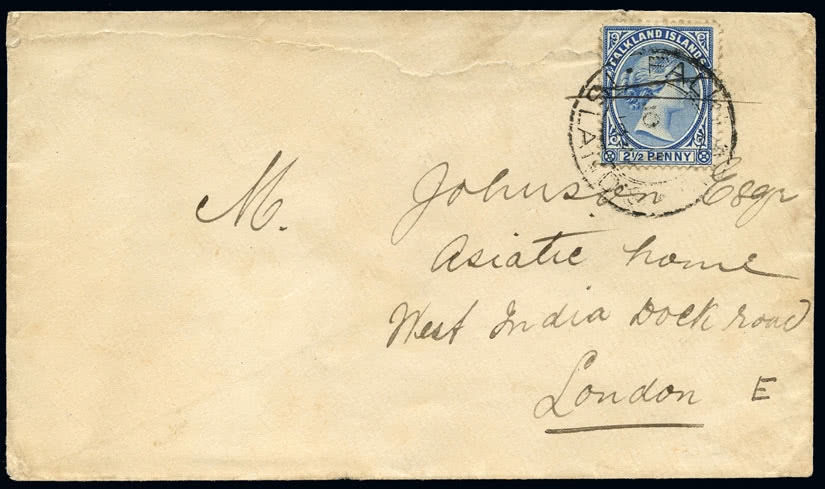 FALKLAND ISLANDS
2½ PENNY
M. Johnson Esqr
Asiatic home
West India Dock road
London E